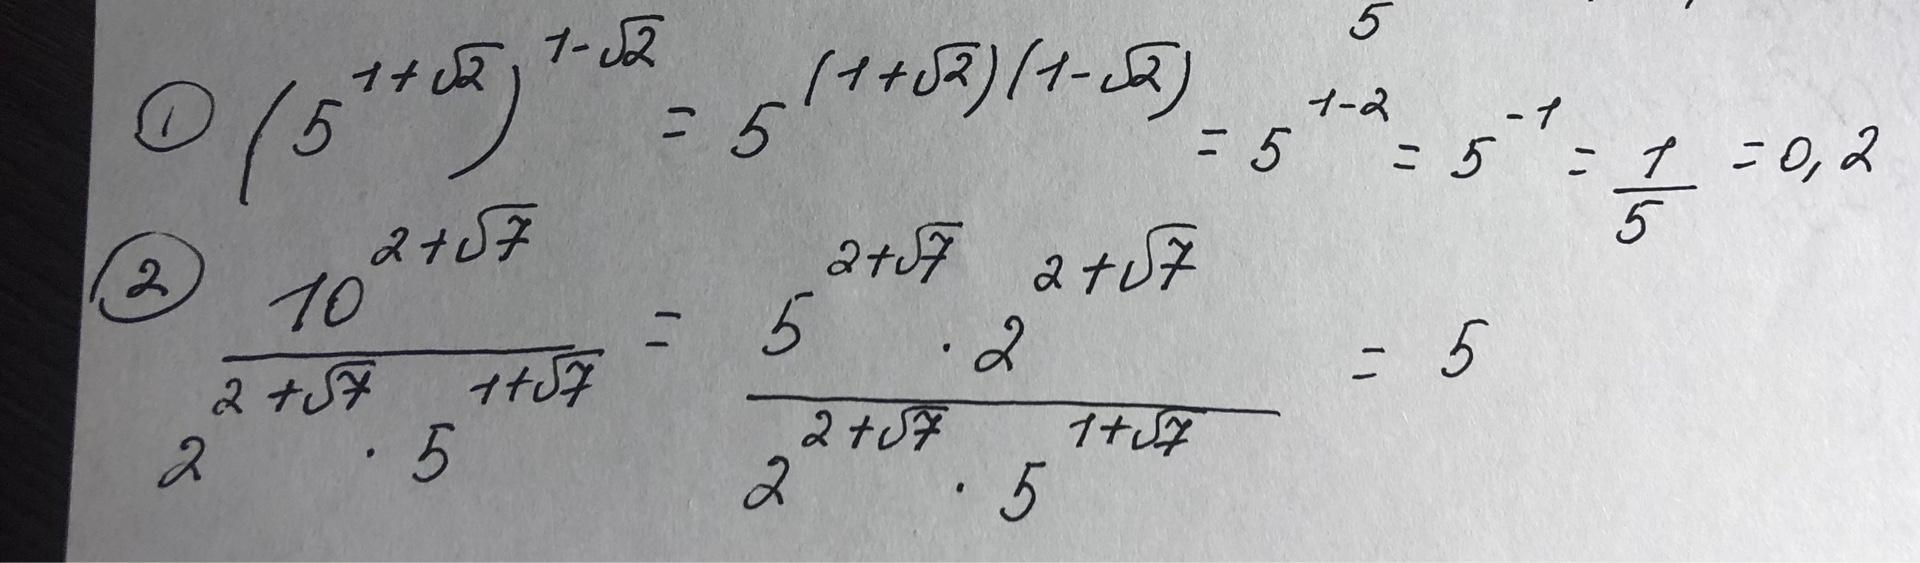 5
① (5^{1+√2})^{1-√2} = 5^{(1+√2)(1-√2)} = 5^{1-2} = 5^{-1} = \frac{1}{5} = 0,2
② \frac{10^{2+√7}}{2^{2+√7} · 5^{1+√7}} = \frac{5^{2+√7} · 2^{2+√7}}{2^{2+√7} · 5^{1+√7}} = 5